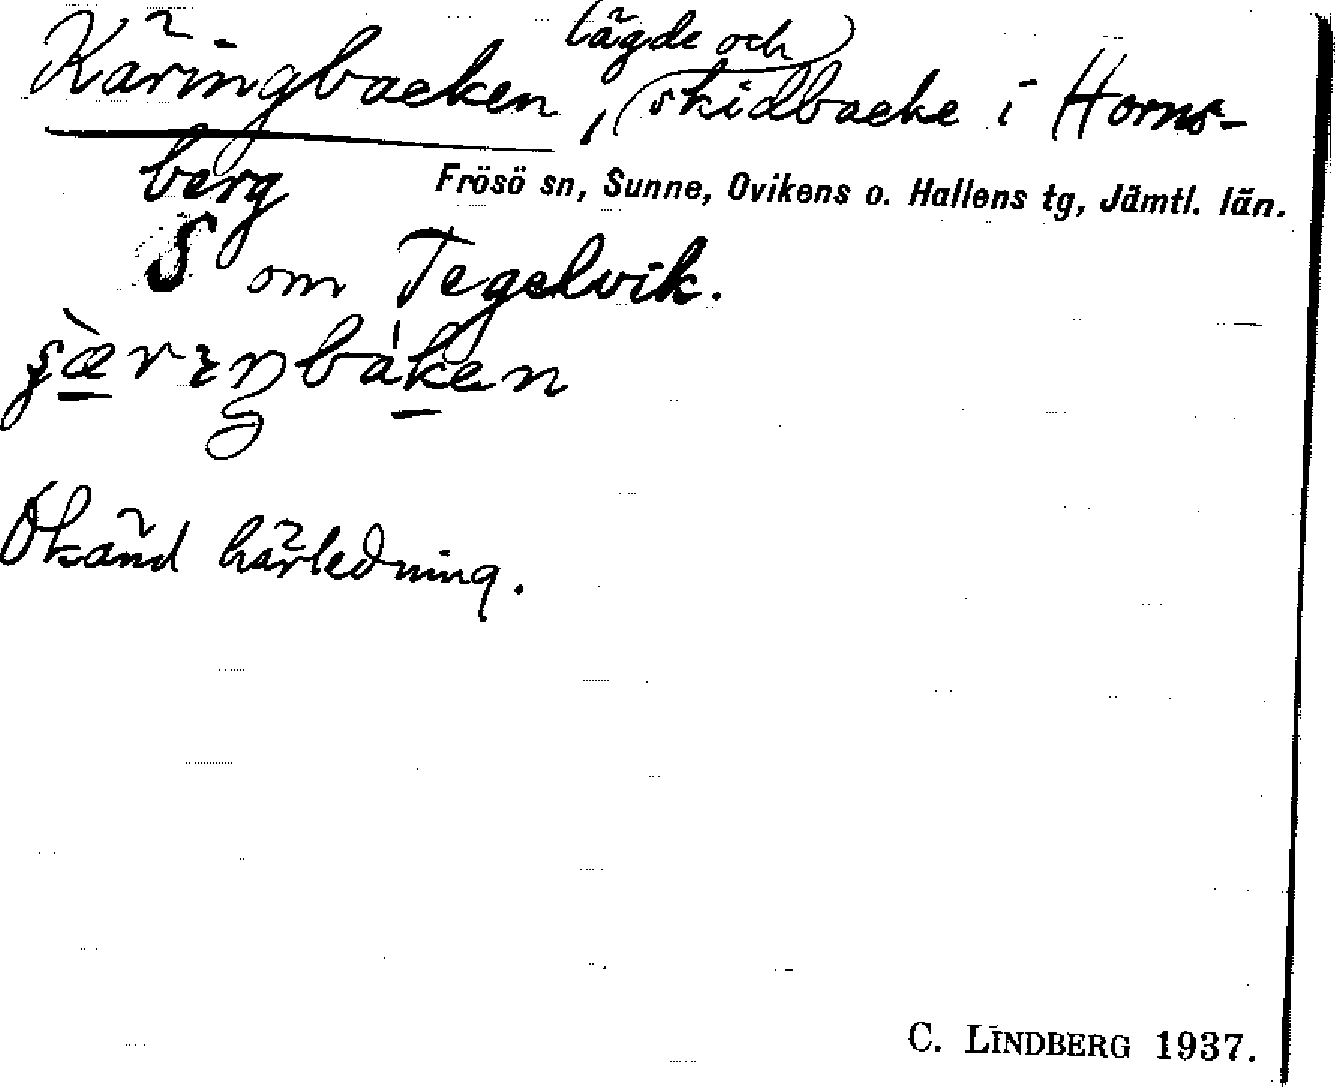 Käringbacken, lägde och skidbacke i Horns-
berg
Frösö sn, Sunne, Ovikens o. Hallens tg, Jämtl. län.
S om Tegelvik.
Okänd härledning.
C. LINDBERG 1937.